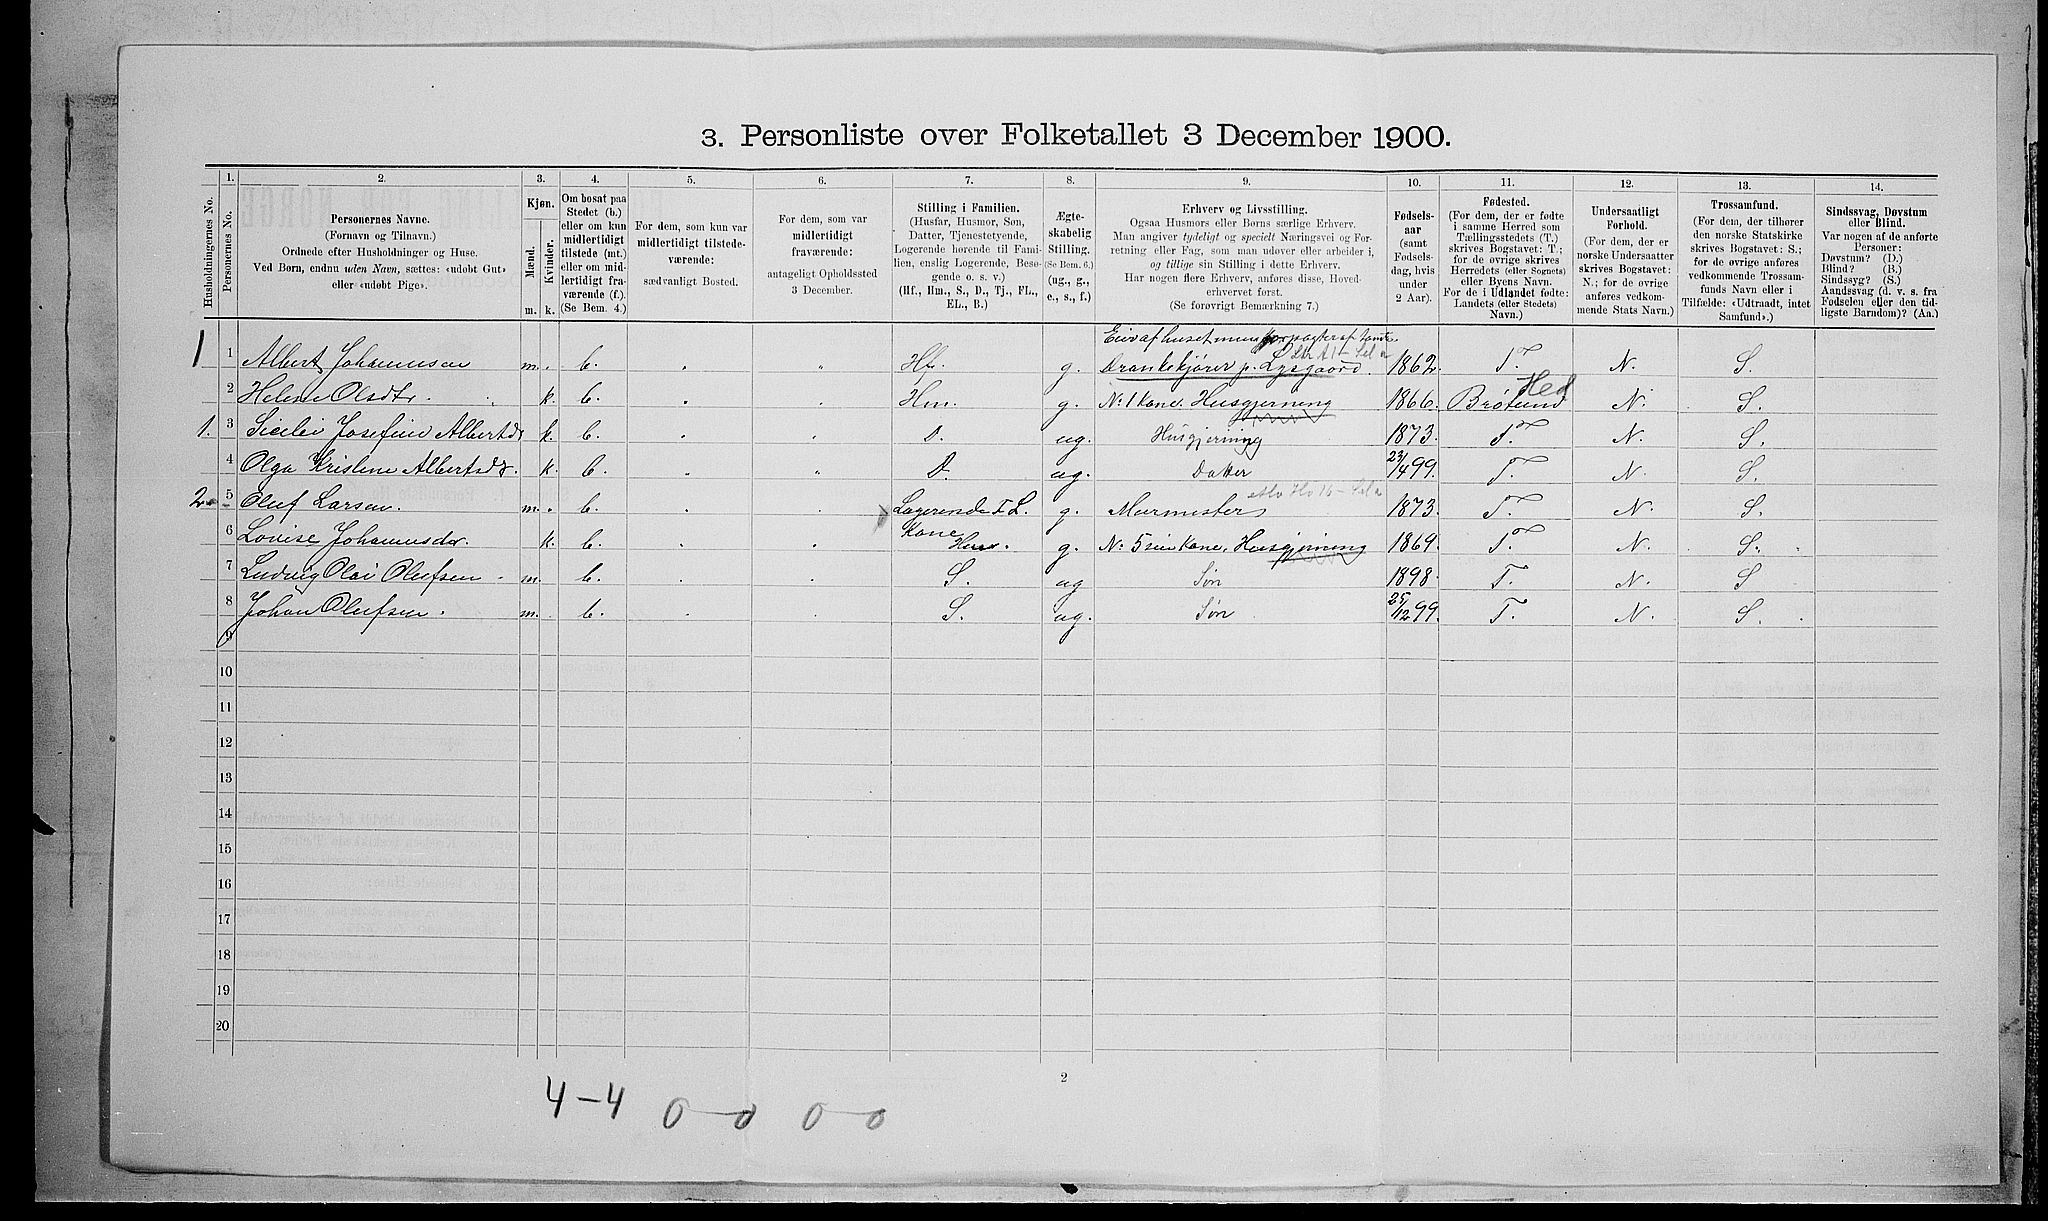 3. Personliste over Folketallet 3 December 1900.
Husholdningernes No.
1.
Personernes No.
2.
Personernes Navne.
(Fornavn og Tilnavn.)
Ordnede efter Husholdninger og Huse.
Ved Børn, endnu uden Navn, sættes: «udøbt Gut»
eller «udøbt Pige».
3.
Kjøn.
Mænd.
Kvinder.
m. k.
4.
Om bosat paa
Stedet (b.)
eller om kun
midlertidigt
tilstede (mt.)
eller om mid-
lertidigt fra-
værende (f.).
(Se Bem. 4.)
5.
For dem, som kun var
midlertidigt tilstede-
værende:
sædvanligt Bosted.
6.
For dem, som var
midlertidigt
fraværende:
antageligt Opholdssted
3 December.
7.
Stilling i Familien.
(Husfar, Husmor, Søn,
Datter, Tjenestetyende,
Logerende hørende til Fami-
lien, enslig Logerende, Besø-
gende o. s. v.)
(Hf., Hm., S., D., Tj., FL.,
EL., B.)
8.
Ægte-
skabelig
Stilling.
(Se Bem. 6.)
(ug., g.,
e., s., f.)
9.
Erhverv og Livsstilling.
Ogsaa Husmors eller Børns særlige Erhverv.
Man angiver tydeligt og specielt Næringsvei og For-
retning eller Fag, som man udøver eller arbeider i,
og tillige sin Stilling i dette Erhverv.
Har nogen flere Erhverv, anføres disse, Hoved-
erhvervet først.
(Se forøvrigt Bemærkning 7.)
10.
Fødsels-
aar
(samt
Fødsels-
dag, hvis
under
2 Aar).
11.
Fødested.
(For dem, der er fødte
i samme Herred som
Tællingsstedets (T.)
skrives Bogstavet: T.;
for de øvrige skrives
Herredets (eller Sognets)
eller Byens Navn.
For de i Udlandet fødte:
Landets (eller Stedets)
Navn.)
12.
Undersaatligt
Forhold.
(For dem, der er
norske Undersaatter
skrives Bogstavet:
N.; for de øvrige
anføres vedkom-
mende Stats Navn.)
13.
Trossamfund.
(For dem, der tilhører
den norske Statskirke
skrives Bogstavet: S.;
for de øvrige anføres
vedkommende Trossam-
funds Navn eller i
Tilfælde: «Udtraadt, intet
Samfund».)
14.
Sindssvag, Døvstum
eller Blind.
Var nogen af de anførte
Personer:
Døvstum? (D.)
Blind? (B.)
Sindssyg? (S.)
Aandssvag (d. v. s. fra
Fødselen eller den tid-
ligste Barndom)? (Aa.)
1 1 Albert Johannessen m. b. Hf. g. Drankekjører p. Lysgaard. 1862 T. N. S.
2 Helene Olsdtr. k. b. Hm. g. N: 1 Kone. Husgjerning 1866. Brøtund Hed N. S.
1. 3 Sicilie Josefine Albertds k. b. D. ug. Husgjerning 1873. T. N. S.
4 Olga Kristene Albertsdr. k. b. D. ug. Datter 23/4 99. T. N. S.
2. 5 Oluf Larsen. m. b. Logerende F L. g. Murmester 1873. T. N. S.
6 Lovise Johannsdr. k. b. Kone Hm. g. N: 5 sin Kone, Husgjerning 1869. T. N. S.
7 Ludvig Olai Olufsen m. b. S. ug Søn 1898. T. N. S
8 Johan Olufsen. m. b. S. ug. Søn 25/12 99. T. N. S.
9
10
11
12
13
14
15
16
17
18
19
20
2
4-4 0-0 0-0